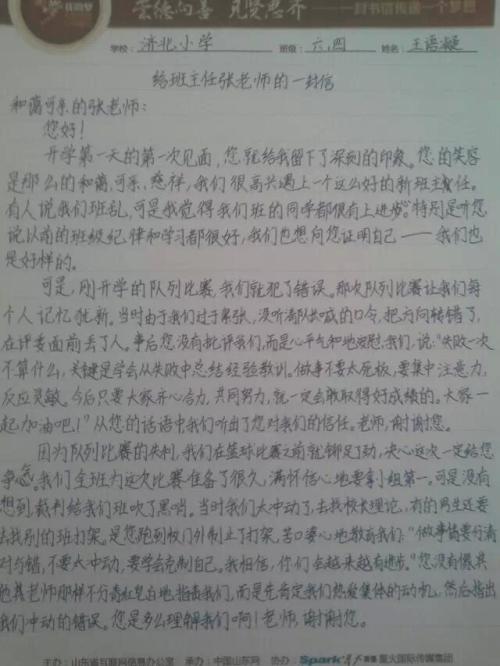 崇德向善 见贤思齐 ——一封书信传递一个梦想
学校: 济北小学 班级: 六.四 姓名: 王语凝
给班主任张老师的一封信
和蔼可亲的张老师:
您好!
开学第一天的第一次见面,您就给我留下了深刻的印象。您的笑容
是那么的和蔼,可亲,慈祥,我们很高兴遇上一个这么好的新班主任。
有人说我们班乱,可是我觉得我们班的同学都很有上进步。特别是听您
说以前的班级纪律和学习都很好,我们也想向您证明自己——我们也
是好样的。
可是,刚开学的队列比赛,我们就犯了错误。那次队列比赛让我们每
个人记忆犹新。当时由于我们过于紧张,没听清队长喊的口令,把方向转错了,
在评委面前丢了人。事后您没有批评我们,而是心平气和地安慰我们,说:“失败一次
不算什么,关键是学会从失败中总结经验教训。做事不要太死板,要集中注意力,
反应灵敏。今后只要大家齐心合力,共同努力,就一定会取得好成绩的。大家一
起加油吧!”从您的话语中我们听出了您对我们的信任。老师,谢谢您。
因为队列比赛的失利,我们在篮球比赛之前就铆足了劲,决心这次一定给您
争气。我们全班为这次比赛准备了很久,满怀信心地要拿小组第一。可是没有
想到裁判给我们班吹了黑哨。当时我们太冲动了,去找校长理论,有的男生还要
去找别的班打架。是您跑到校门外制止了打架,苦口婆心地教育我们:“做事情要分清
对与错,不要太冲动,要学会克制自己。我相信,你们会越来越有进步。”您没有像其
他老师那样不分青红皂白地指责我们,而是先肯定我们热爱集体的动机,然后指出
我们冲动的错误。您是多么理解我们啊!老师,谢谢您。
主办:山东省互联网信息办公室 承办:中国山东网 协办:Spark星火 星火国际传媒集团